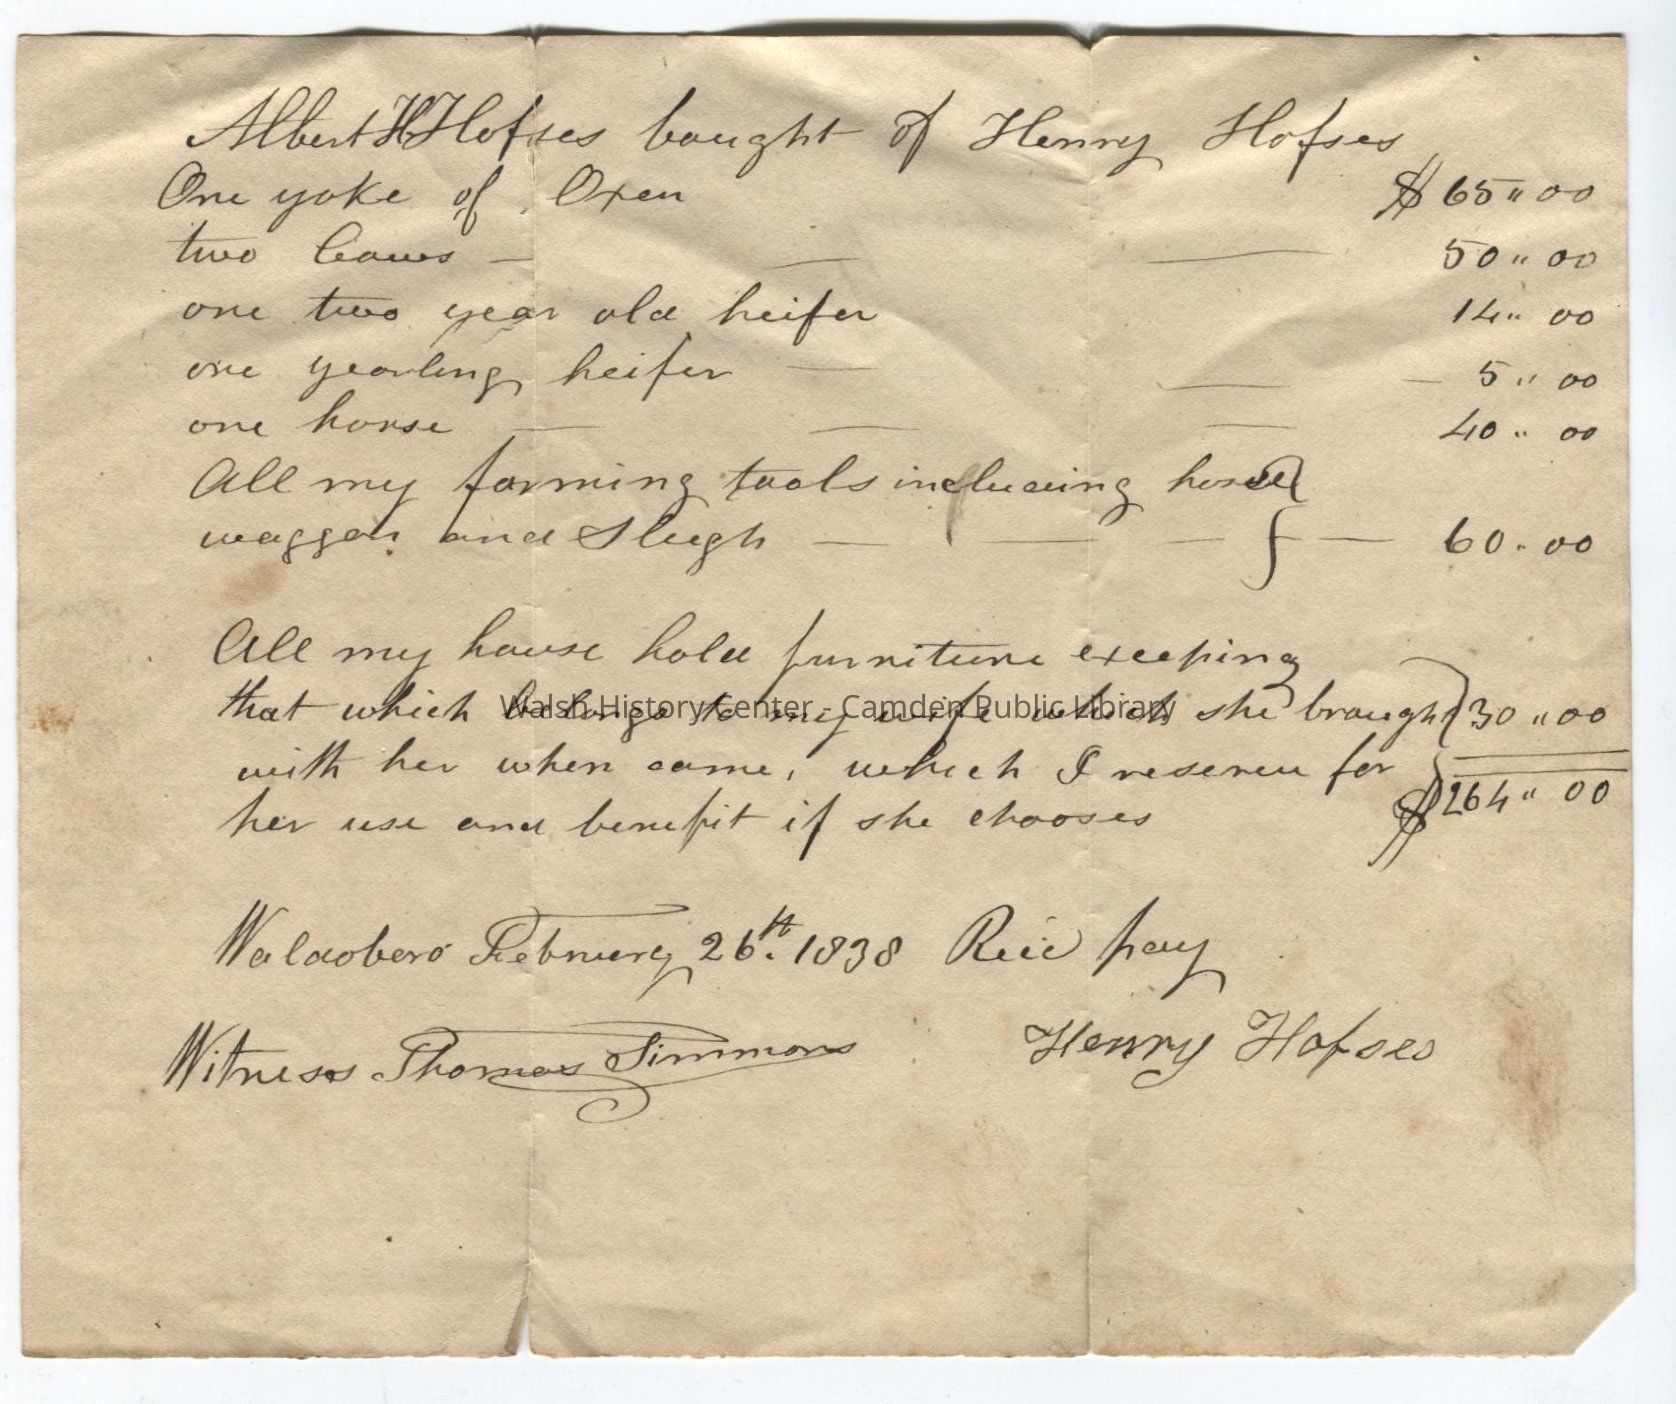 Albert H Hofses bought of Henry Hofses
One yoke of Oxen $ 65 " 00
two Cows — — — 50 " 00
one two year old heifer 14 " 00
one yearling heifer — — — 5 " 00
one horse — — — 40 " 00
All my farming tools including horse
waggon and Sleigh — — — } — 60 . 00
All my house hold furniture exceping
that which belongs to my wife which she brought } 30 " 00
with her when came, which I reserve for
$ 264 " 00
her use and benefit if she chooses
Waldoboro February 26th. 1838 Recd pay
Witness Thomas Simmons Henry Hofses
Walsh History Center - Camden Public Library